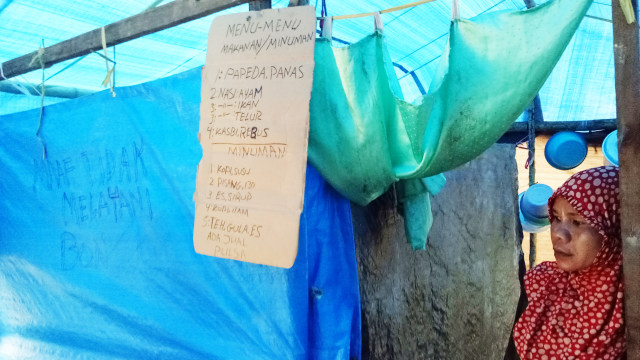 MENU-MENU
MAKANAN/MINUMAN
1: PAPEDA, PANAS
2 NASI, AYAM
3 -〃- : IKAN
3 -〃- TELUR
4: KASBI, REBUS
MINUMAN
1 KOPI, SUSU
3 ES. SIRUP
5: TEH. GULA. ES
ADA JUAL
PULSA
MAAF
MELAYANI
BON